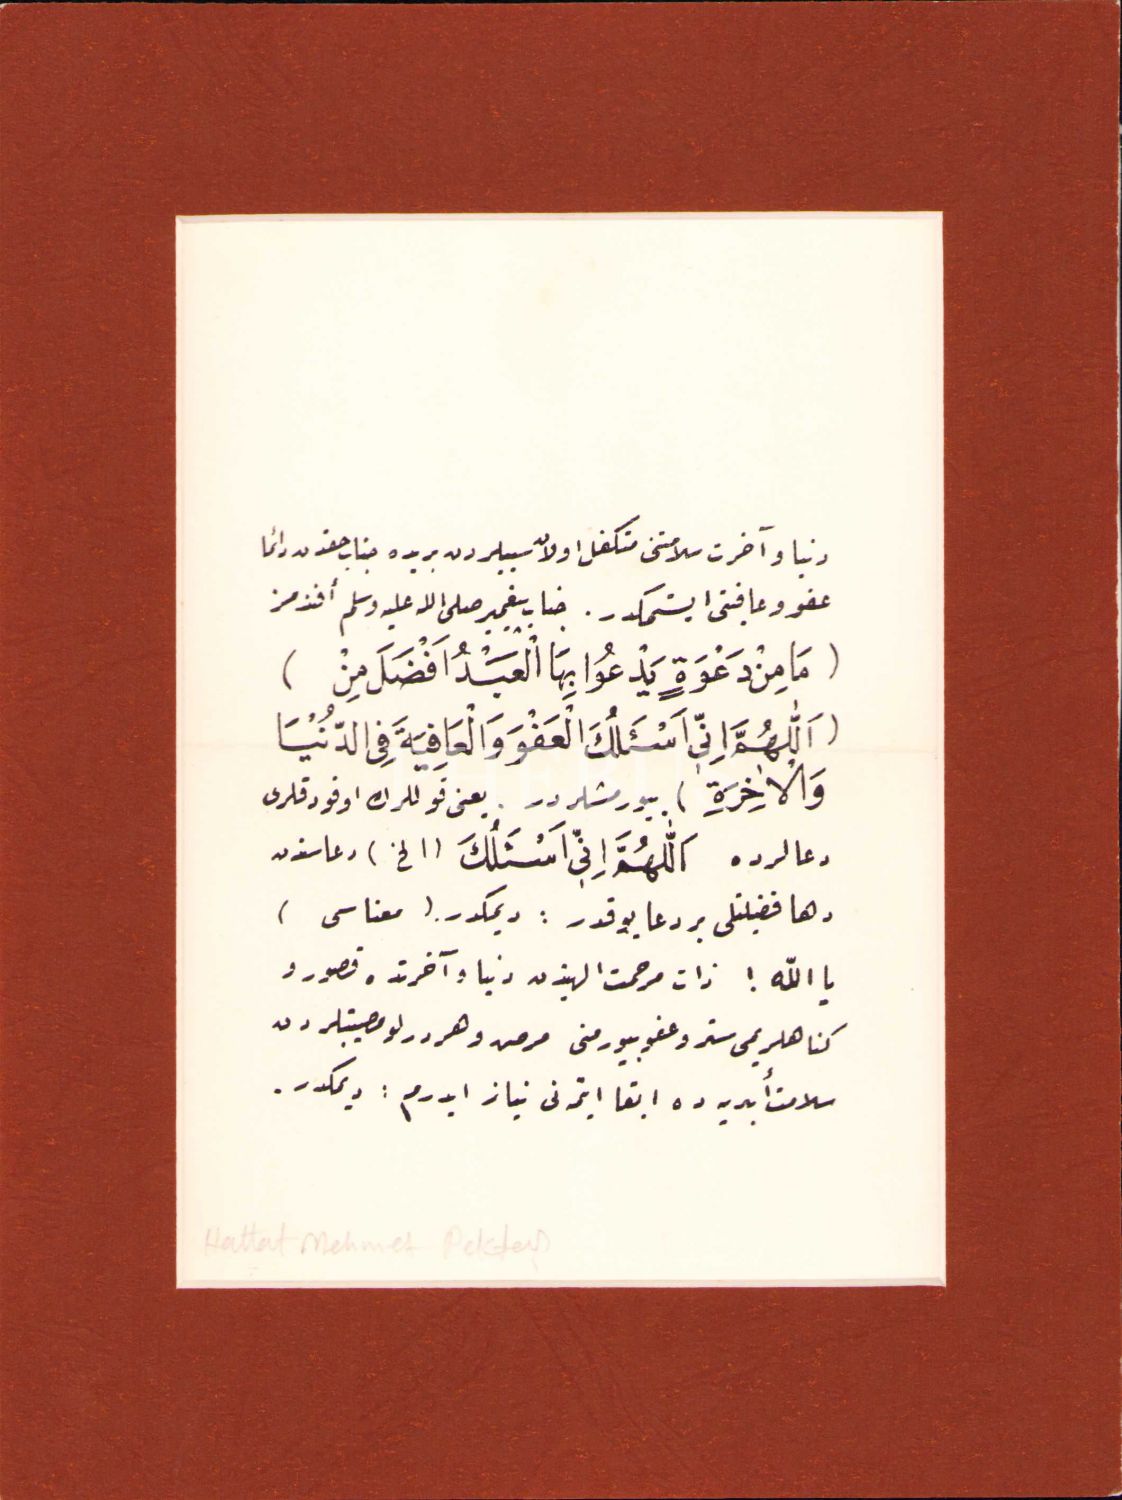 دنيا و آخرت سلامتنى متكفل اولان سببلردن بريده جناب حقدن دائما
عفو و عافيتى ايستمكدر . جناب پيغمبر صلى الله عليه وسلم أفندمز
( مَا مِنْ دَعْوَةٍ يَدْعُوا بِهَا الْعَبْدُ اَفْضَلَ مِنْ )
( اَللّٰهُمَّ اِنِّى اَسْئَلُكَ الْعَفْوَ وَالْعَافِيَةَ فِى الدُّنْيَا
وَالْاٰخِرَةِ ) بيورمشلردر . يعنى قوللرك اوقودقلرى
دعالرده اَللّٰهُمَّ اِنِّى اَسْئَلُكَ ( الخ ) دعاسندن
دها فضيلتلى بر دعا يوقدر : ديمكدر . ( معناسى )
يا الله ! ذات مرحمت الهيدن دنيا و آخرتده قصور و
كناهلريمى ستر و عفو بيورمنى مرض و هر درلو مصيبتلردن
سلامت أبديه ده ابقا ايتمه نى نياز ايدرم : ديمكدر .
Hattat Mehmet